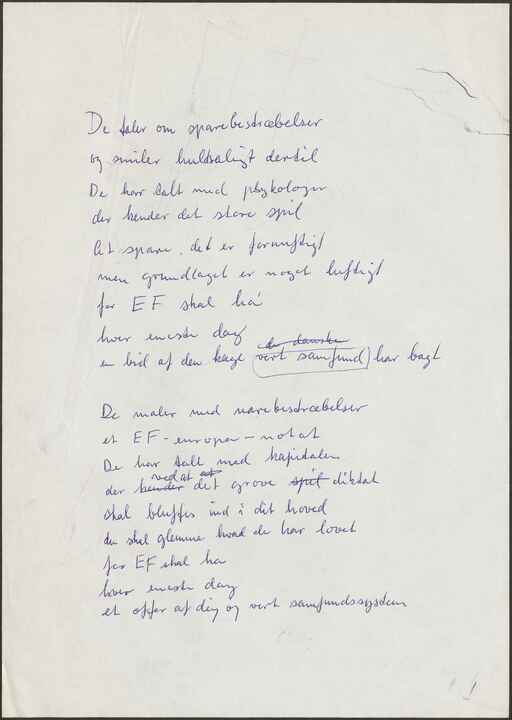 De taler om sparebestræbelser
og smiler huldsaligt dertil
De har talt med psykologer
der kender det store spil
At spare, det er fornuftigt
men grundlaget er noget luftigt
for EF skal ha'
hver eneste dag
de danske
en bid af den kage vort samfund har bagt
De maler med narebestræbelser
et EF-europa-notat
De har talt med kapitalen
ved at et
der kender det grove spil diktat
skal bluffes ind i dit hoved
du skal glemme hvad de har lovet
for EF skal ha
hver eneste dag
et offer af dig og vort samfundssystem